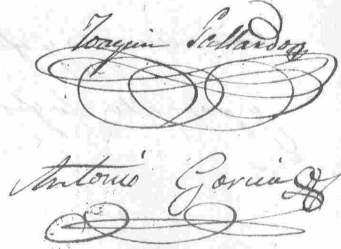 Joaquin Gallardo
Antonio Garcia